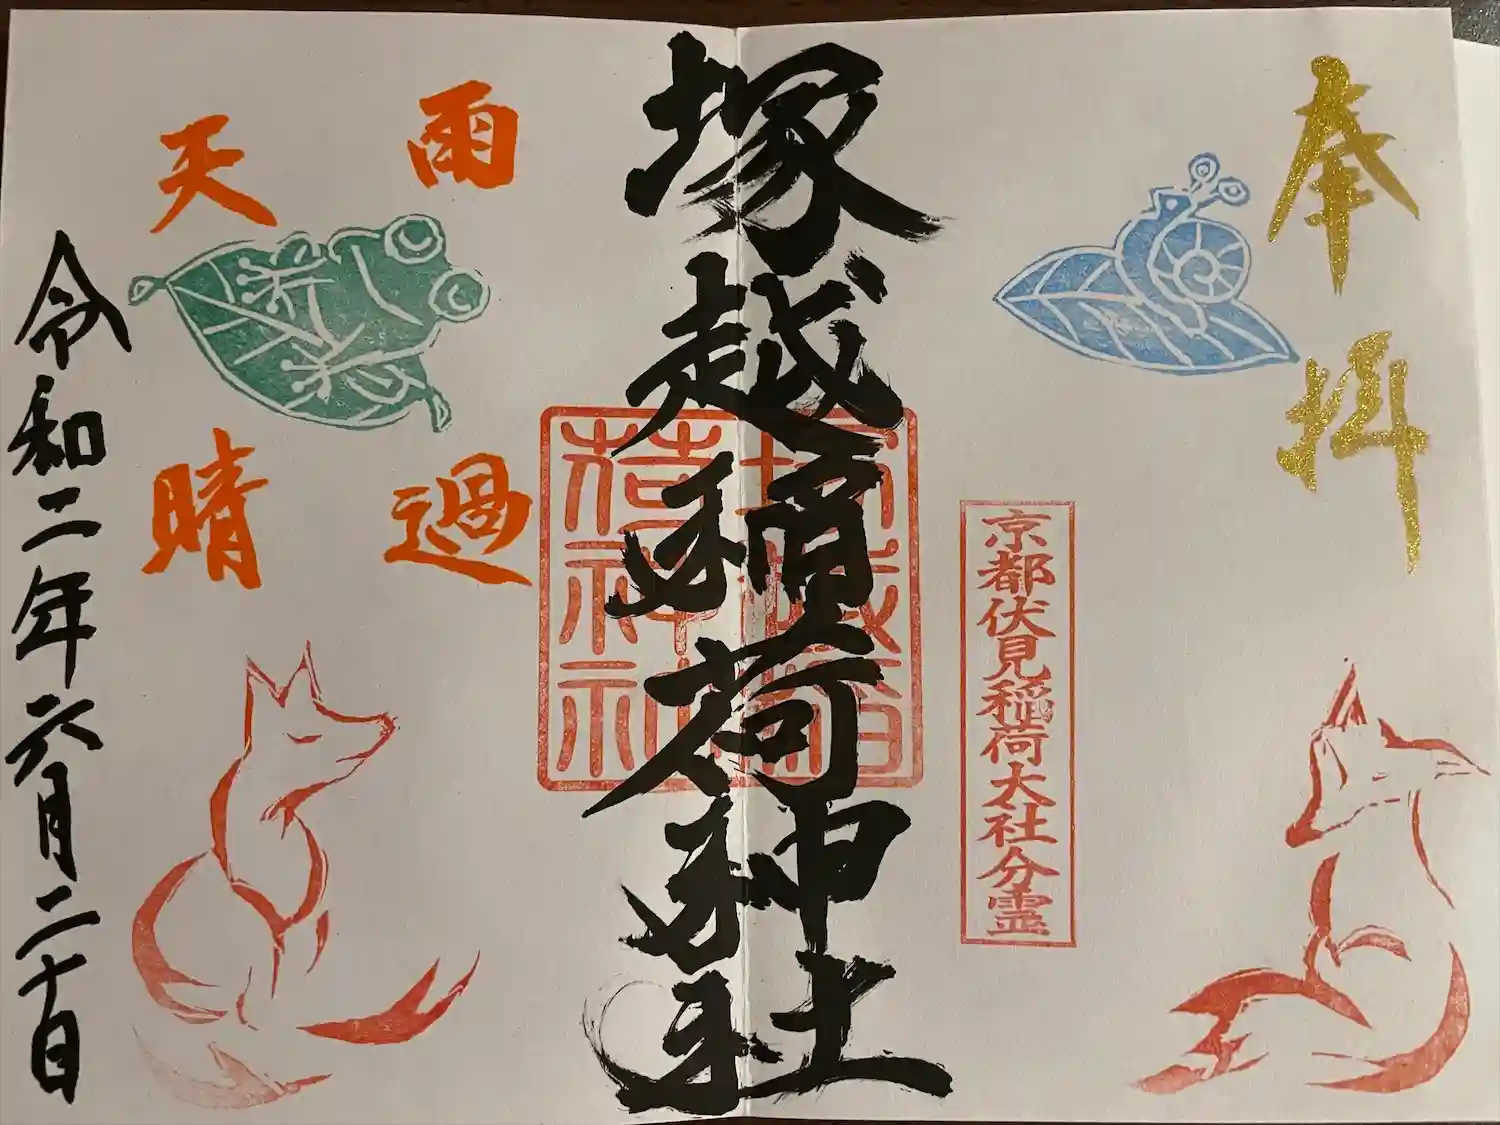 奉拝
京都伏見稲荷大社分霊
塚越稲荷神社
塚越稲
荷神社
雨過
天晴
令和二年六月二十日